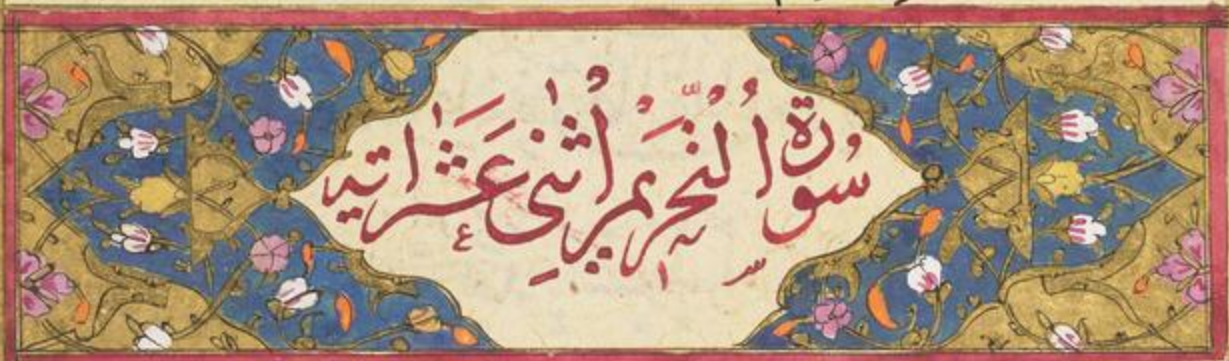 سُورَةُ التَّحْرِيمِ اُثْنٰى عَشَرَ اٰتيه